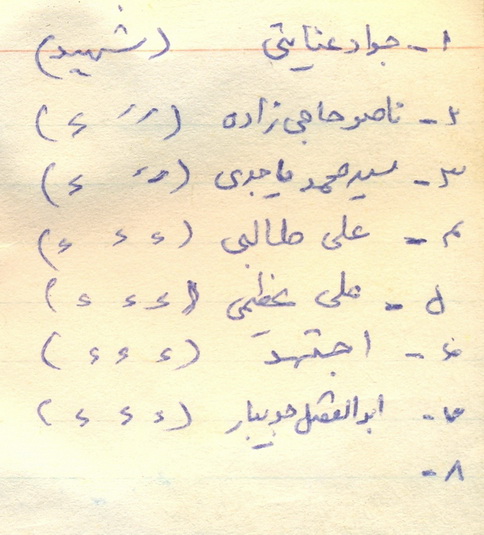 ۱- جواد عنایتی (شهید)
۲- ناصر حاجی زاده (〃 ء)
۳- سید محمد ماجدی (〃 ء)
۴- علی طالبی (ء ء ء)
۵- علی عظیمی (ء ء ء)
۶- اجتهد (ء ء ء)
۷- ابوالفضل جویبار (ء ء ء)
۸-